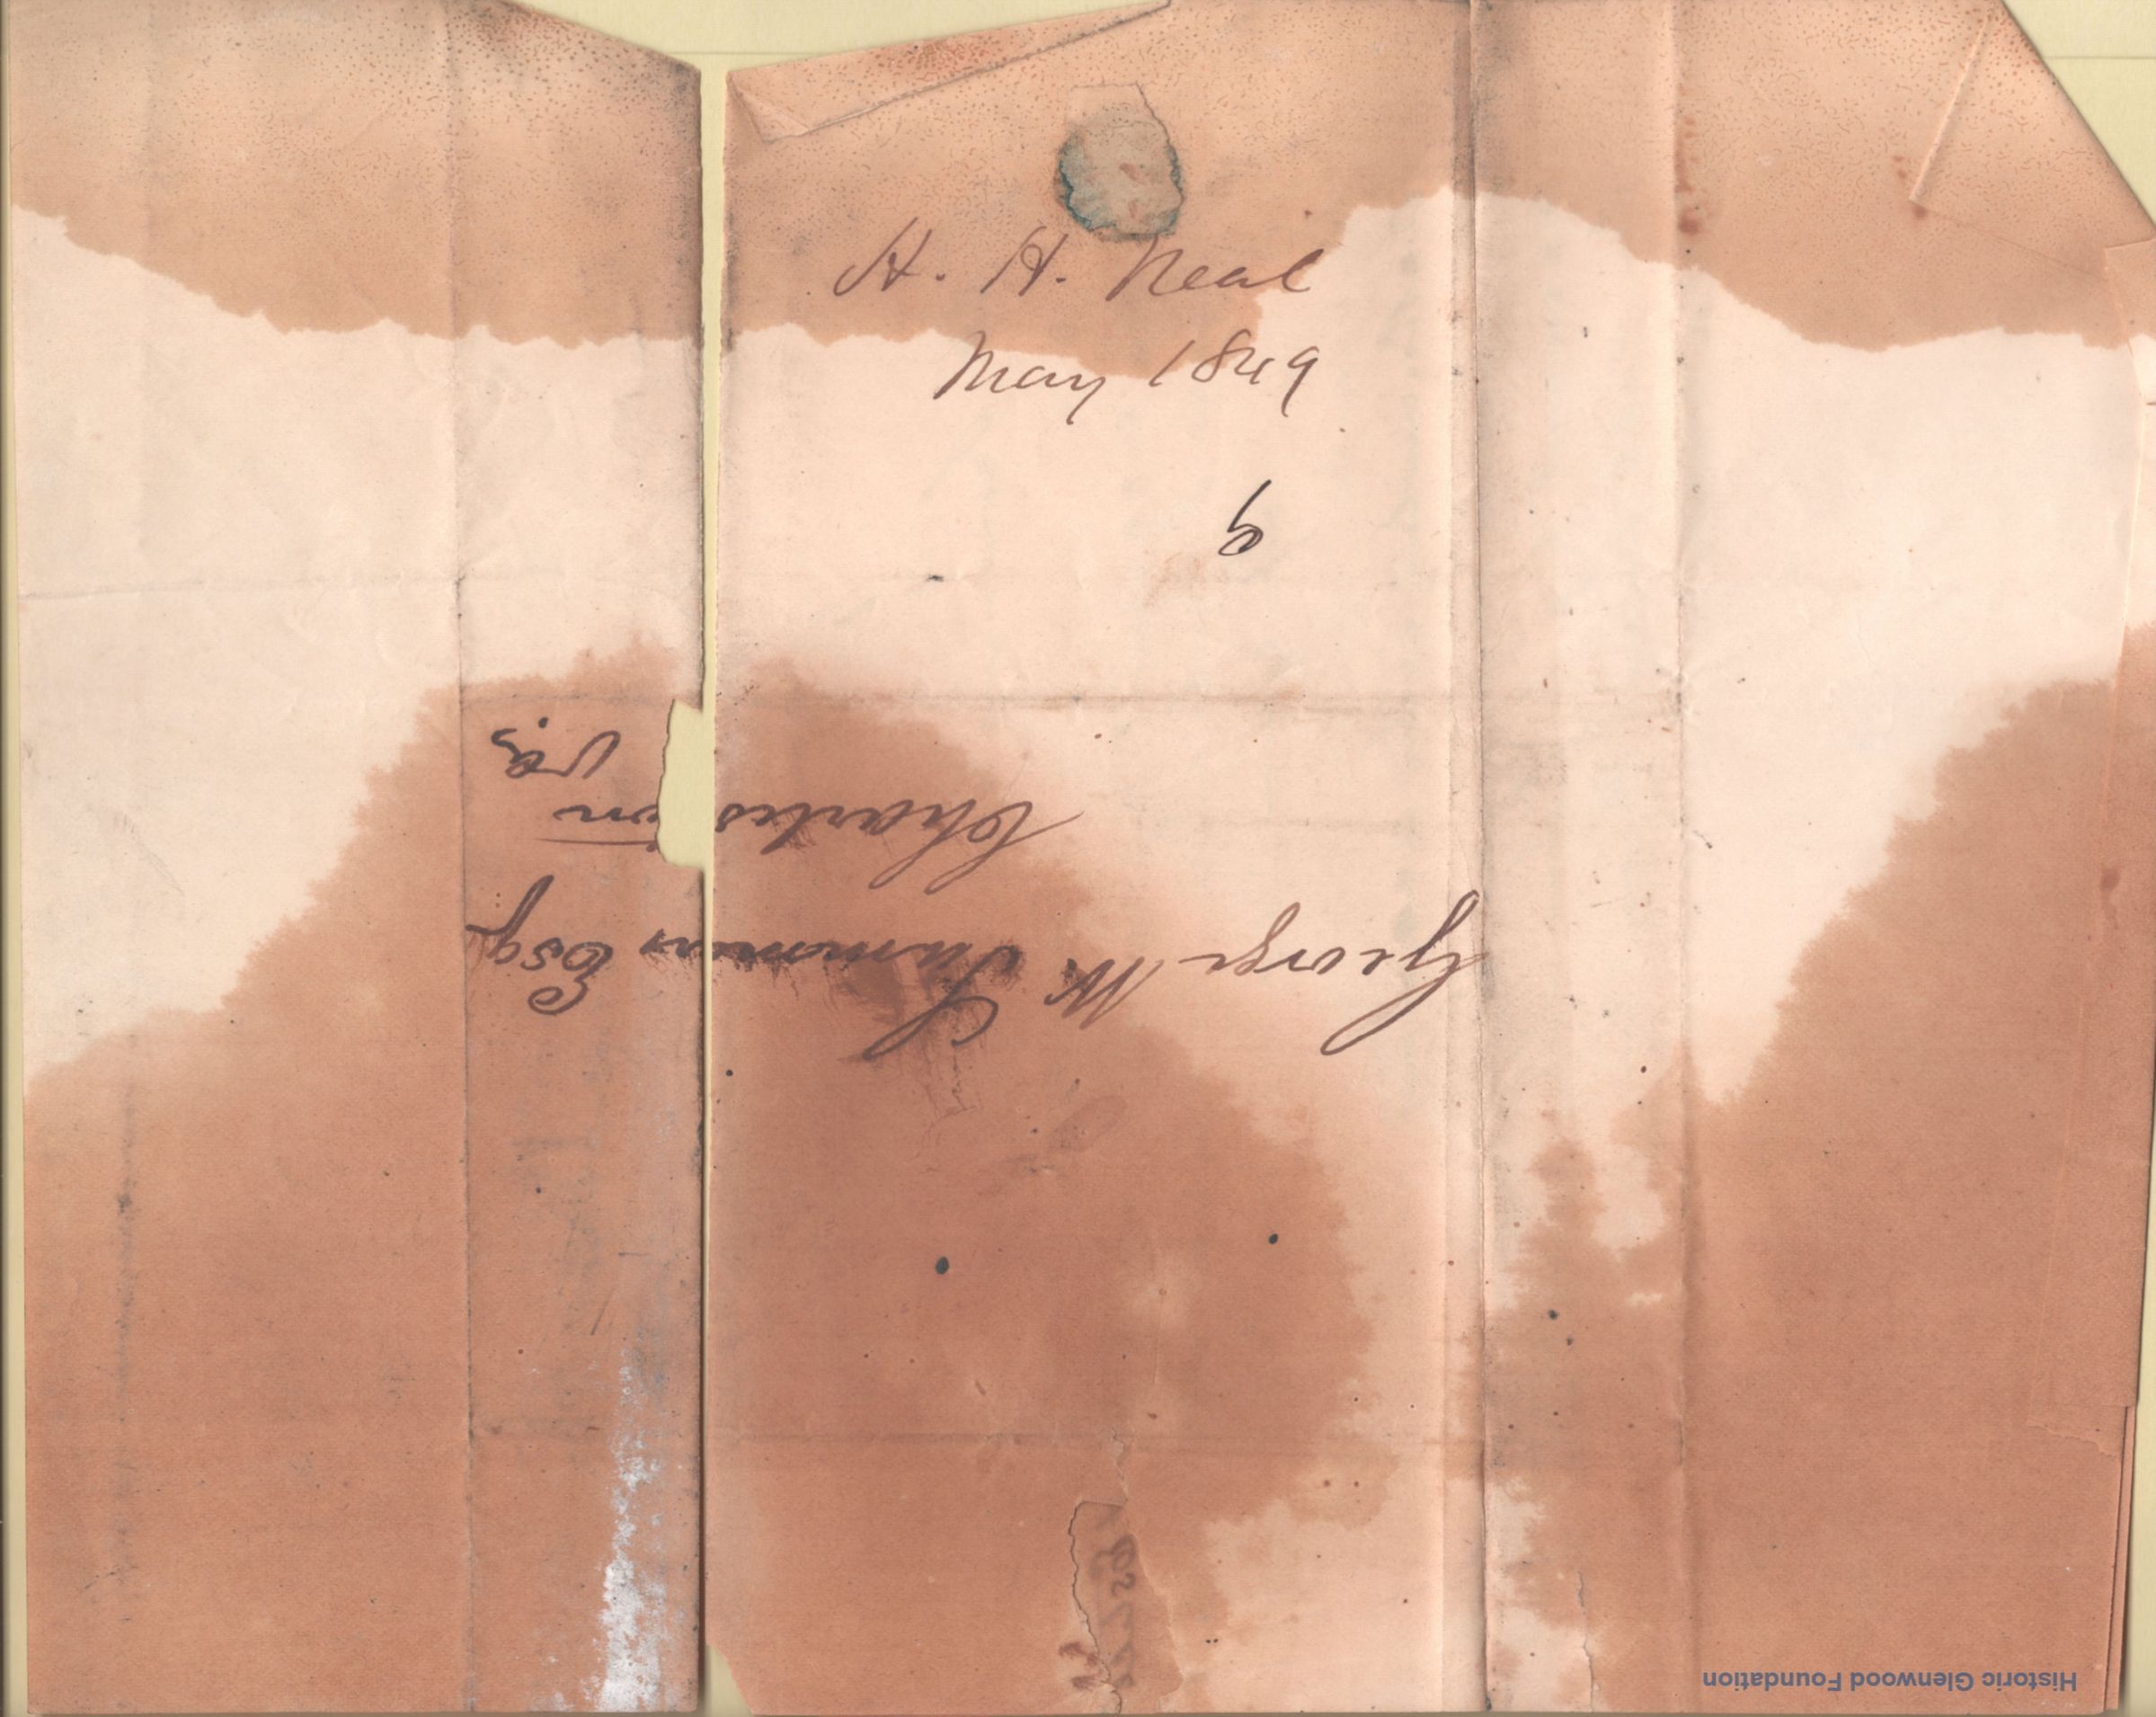 H. H. Neal
May 1849
6
George W. Summers Esqr
Charles on
Va,
Historic Glenwood Foundation